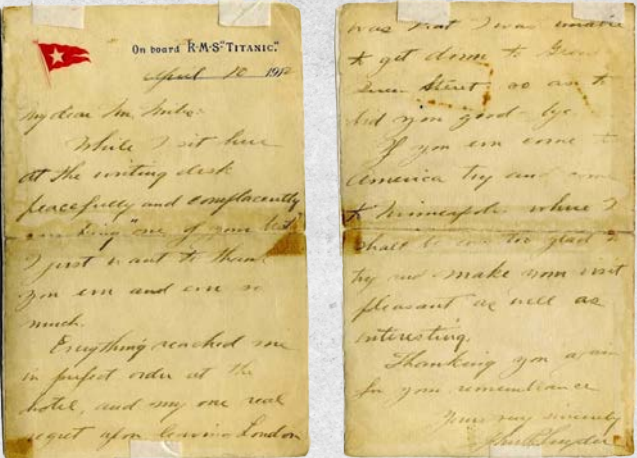 On board R·M·S "TITANIC."
April 10 1912
My dear Mr.
While I sit here
at the writing desk
peacefully and complacently
one of your best
I just want to thank
you ever and ever so
much.
Everything reached me
in perfect order at the
hotel, and my one real
regret upon leaving London
was that I was unable
to get down to
Street so as to
bid you good-bye.
If you ever come to
America try and come
to Minneapolis where I
shall be too glad to
try and make your visit
pleasant as well as
interesting.
Thanking you again
for your remembrance
Yours very sincerely
John Snyder